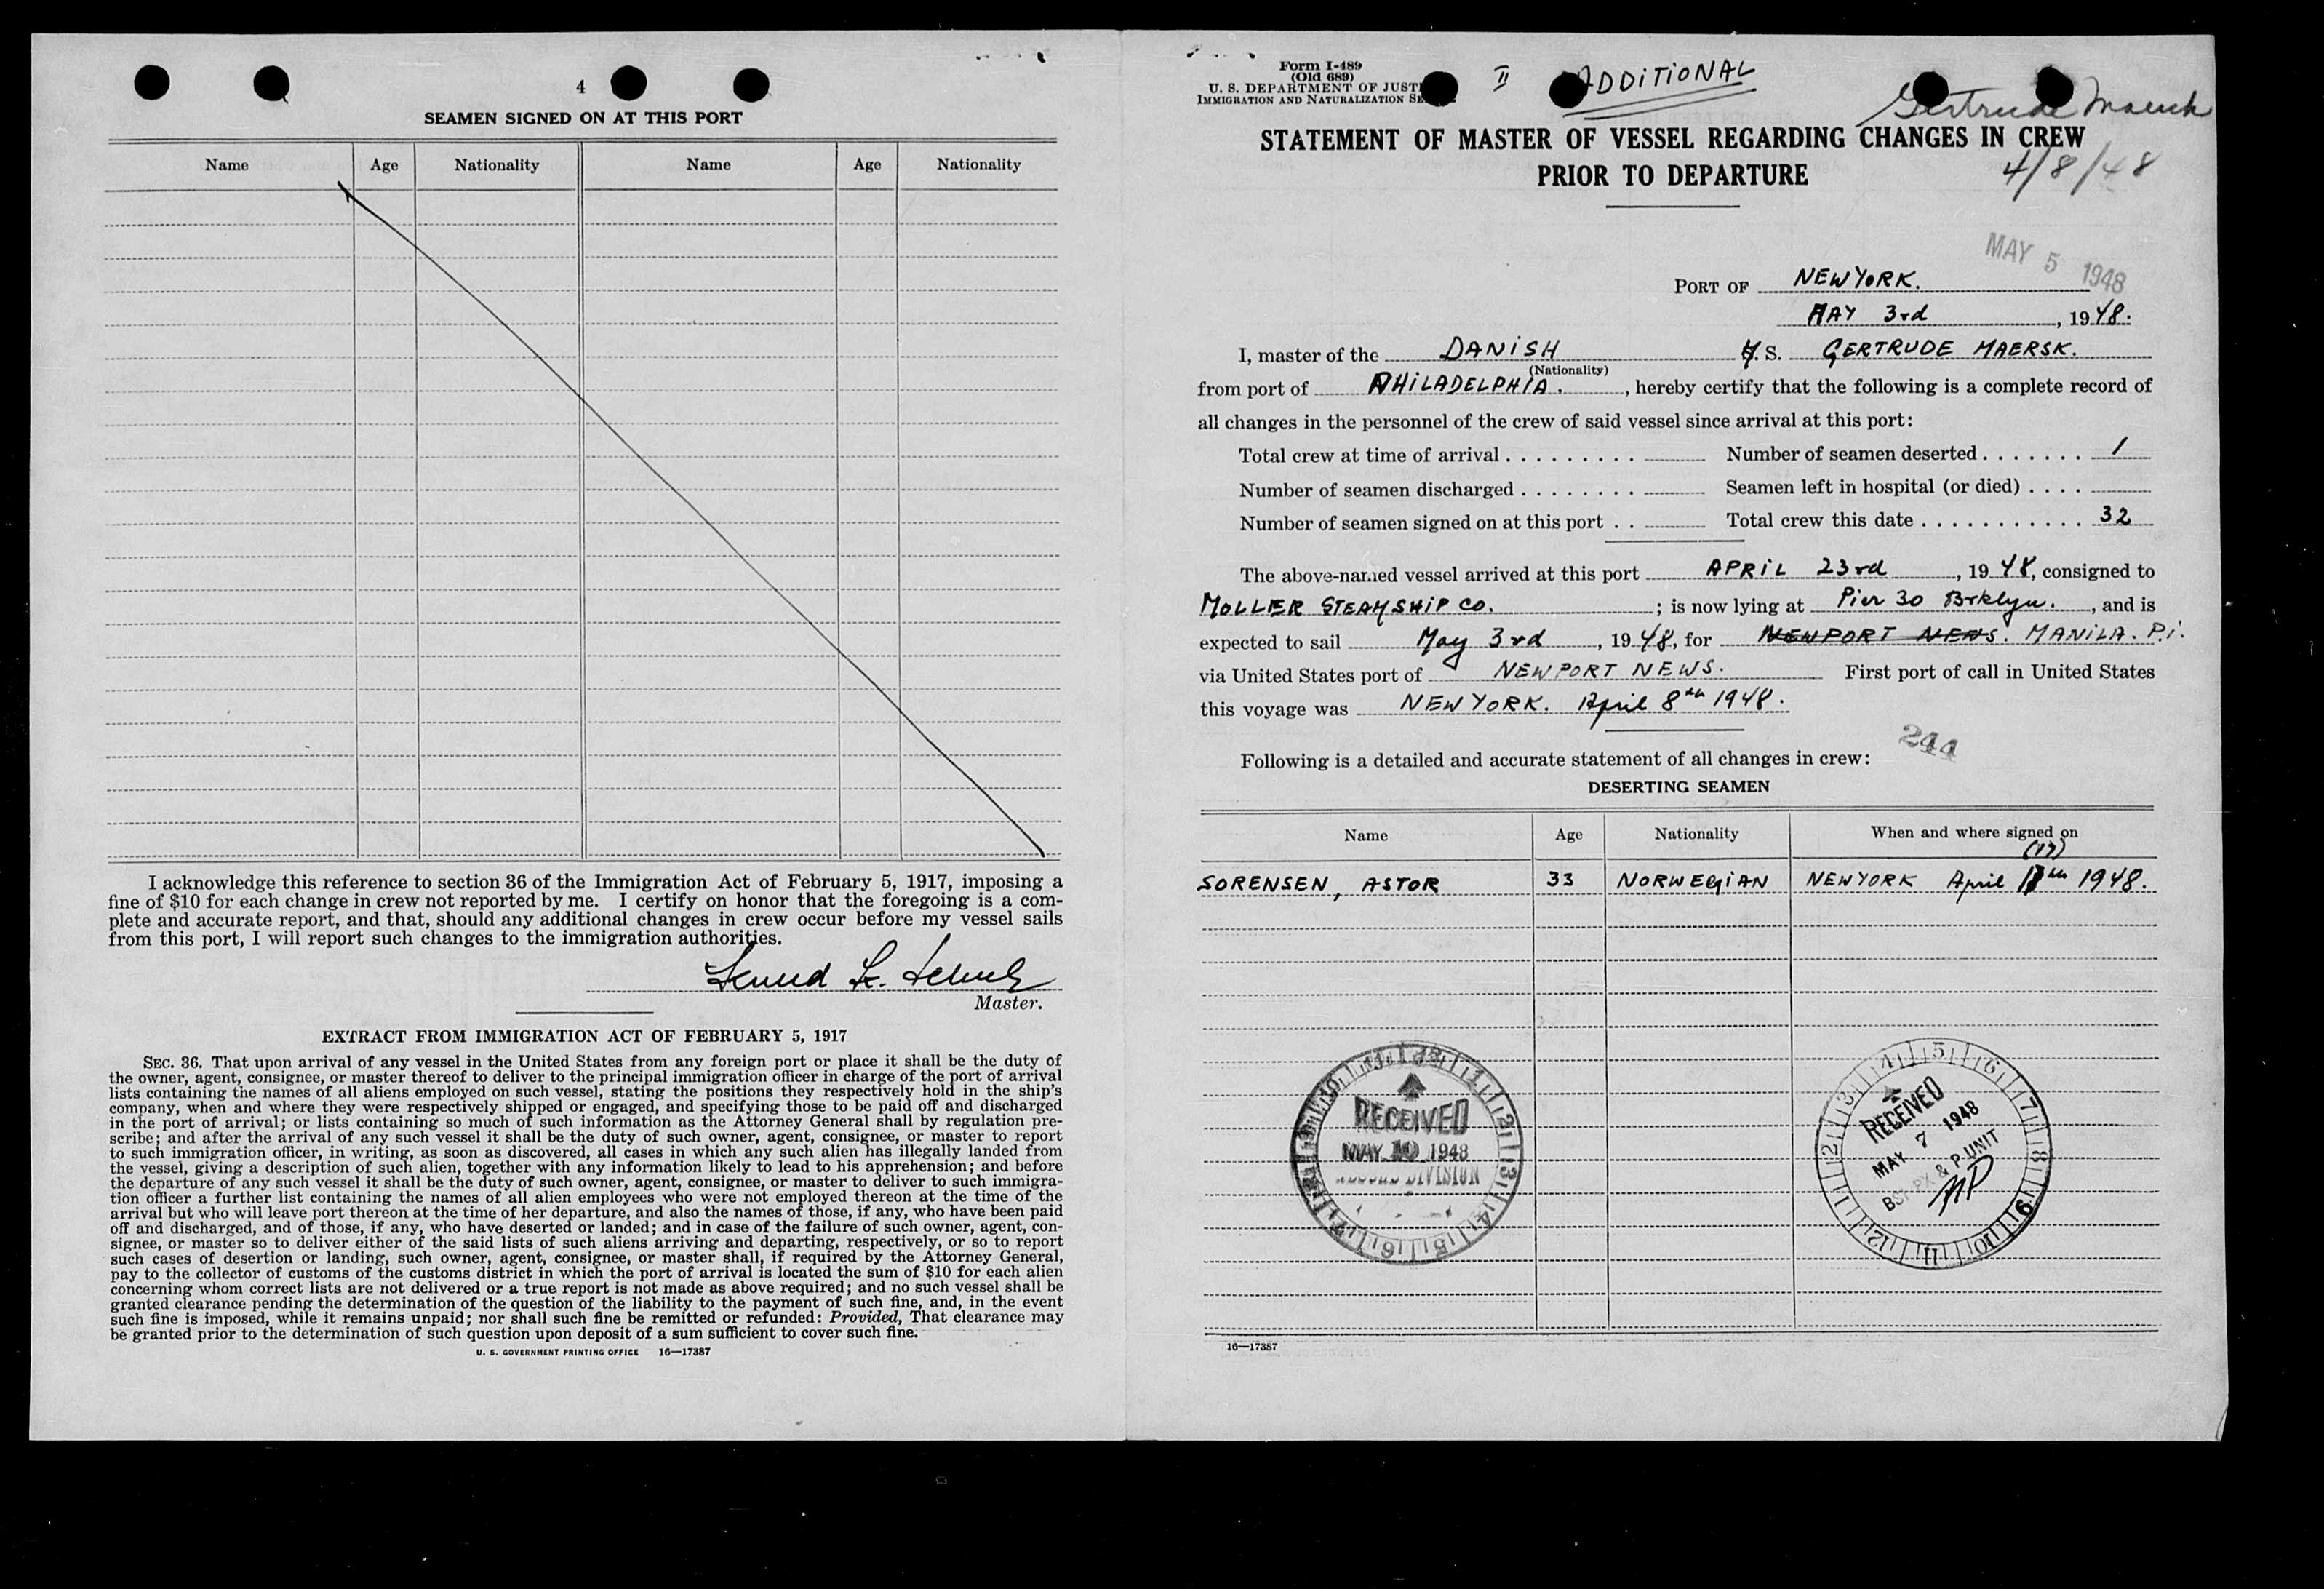 4
SEAMEN SIGNED ON AT THIS PORT
Name Age Nationality Name Age Nationality
I acknowledge this reference to section 36 of the Immigration Act of February 5, 1917, imposing a
fine of $10 for each change in crew not reported by me. I certify on honor that the foregoing is a com-
plete and accurate report, and that, should any additional changes in crew occur before my vessel sails
from this port, I will report such changes to the immigration authorities.
Master.
EXTRACT FROM IMMIGRATION ACT OF FEBRUARY 5, 1917
SEC. 36. That upon arrival of any vessel in the United States from any foreign port or place it shall be the duty of
the owner, agent, consignee, or master thereof to deliver to the principal immigration officer in charge of the port of arrival
lists containing the names of all aliens employed on such vessel, stating the positions they respectively hold in the ship's
company, when and where they were respectively shipped or engaged, and specifying those to be paid off and discharged
in the port of arrival; or lists containing so much of such information as the Attorney General shall by regulation pre-
scribe; and after the arrival of any such vessel it shall be the duty of such owner, agent, consignee, or master to report
to such immigration officer, in writing, as soon as discovered, all cases in which any such alien has illegally landed from
the vessel, giving a description of such alien, together with any information likely to lead to his apprehension; and before
the departure of any such vessel it shall be the duty of such owner, agent, consignee, or master to deliver to such immigra-
tion officer a further list containing the names of all alien employees who were not employed thereon at the time of the
arrival but who will leave port thereon at the time of her departure, and also the names of those, if any, who have been paid
off and discharged, and of those, if any, who have deserted or landed; and in case of the failure of such owner, agent, con-
signee, or master so to deliver either of the said lists of such aliens arriving and departing, respectively, or so to report
such cases of desertion or landing, such owner, agent, consignee, or master shall, if required by the Attorney General,
pay to the collector of customs of the customs district in which the port of arrival is located the sum of $10 for each alien
concerning whom correct lists are not delivered or a true report is not made as above required; and no such vessel shall be
granted clearance pending the determination of the question of the liability to the payment of such fine, and, in the event
such fine is imposed, while it remains unpaid; nor shall such fine be remitted or refunded: Provided, That clearance may
be granted prior to the determination of such question upon deposit of a sum sufficient to cover such fine.
U. S. GOVERNMENT PRINTING OFFICE 16—17387
Form I-489
(Old 689)
U. S. DEPARTMENT OF JUST
IMMIGRATION AND NATURALIZATION SE
II ADDITIONAL
Gertrude Maersk
STATEMENT OF MASTER OF VESSEL REGARDING CHANGES IN CREW
PRIOR TO DEPARTURE
4/8/48
MAY 5 1948
PORT OF NEW YORK.
MAY 3rd, 1948.
I, master of the DANISH M.S. GERTRUDE MAERSK.
(Nationality)
from port of PHILADELPHIA., hereby certify that the following is a complete record of
all changes in the personnel of the crew of said vessel since arrival at this port:
Total crew at time of arrival . . . . . . . . . Number of seamen deserted . . . . . . . 1
Number of seamen discharged . . . . . . . . Seamen left in hospital (or died) . . . .
Number of seamen signed on at this port . . Total crew this date . . . . . . . . . . . 32
The above-named vessel arrived at this port APRIL 23rd, 1948, consigned to
MOLLER STEAMSHIP CO.; is now lying at Pier 30 Brklyn., and is
expected to sail May 3rd, 1948, for NEWPORT NEWS. MANILA. P.I.
via United States port of NEWPORT NEWS. First port of call in United States
this voyage was NEW YORK. April 8th 1948.
244
Following is a detailed and accurate statement of all changes in crew:
DESERTING SEAMEN
Name Age Nationality When and where signed on
(17)
SORENSEN, ASTOR 33 NORWEGIAN NEW YORK April 17th 1948.
RECEIVED
MAY 10 1948
RECORD DIVISION
RECEIVED
MAY 7 1948
BSI PX & P UNIT
16—17387